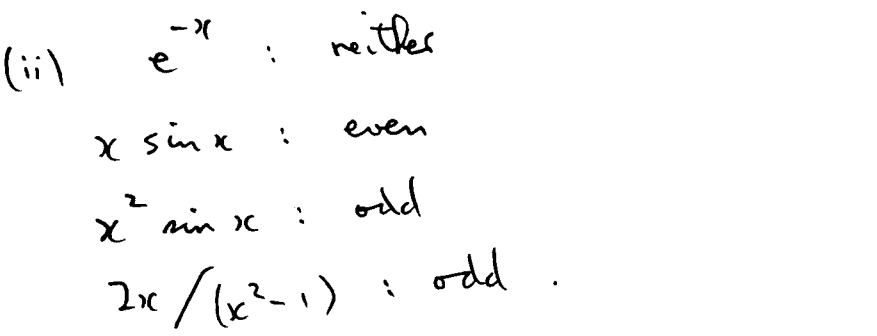 (ii) e^{-x} : neither
x sin x : even
x^2 sin x : odd
2x/(x^2-1) : odd.